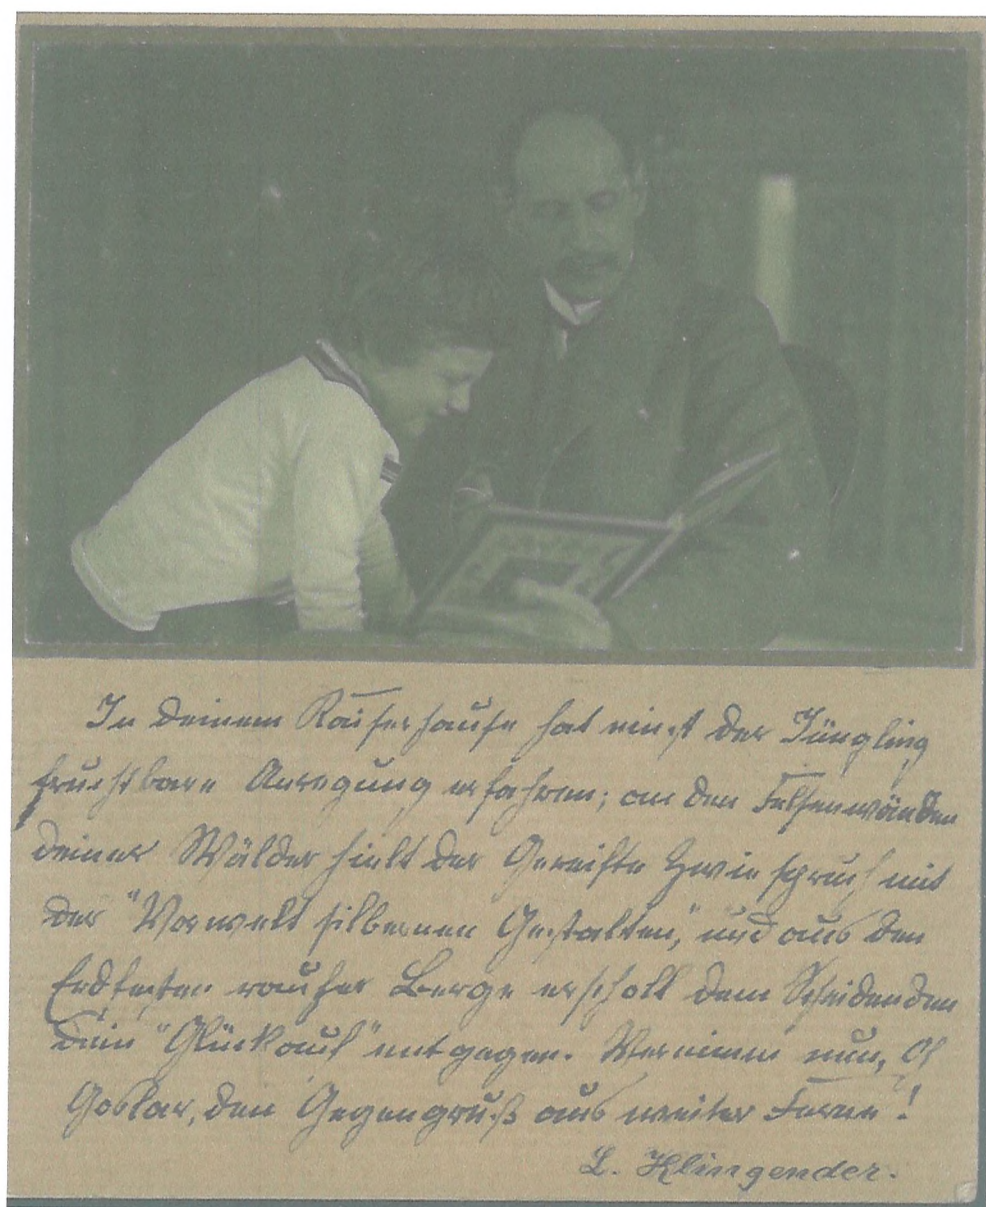 In deinem Kaiserhause hat einst der Jüngling
fruchtbare Anregung erfahren; an den Felsenwänden
deiner Wälder hielt der Gereifte Zwiesprach mit
der "Vorwelt silbernen Gestalten", und aus den
rauher Berge erscholl dem Scheidenden
dein "Glückauf" entgegen. Vernimm nun, oh
Goslar, den Gegengruß aus weiter Ferne!
L. Klingender.